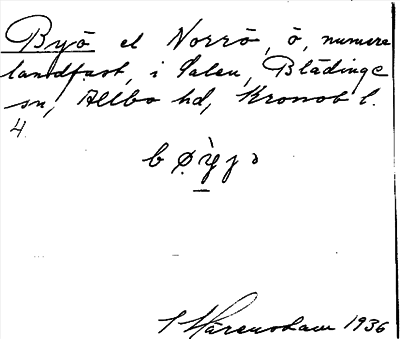 Byö el Norrö, ö, numera
landfast, i Salen, Blädinge
sn, Allbo hd, Kronob l.
4
1936